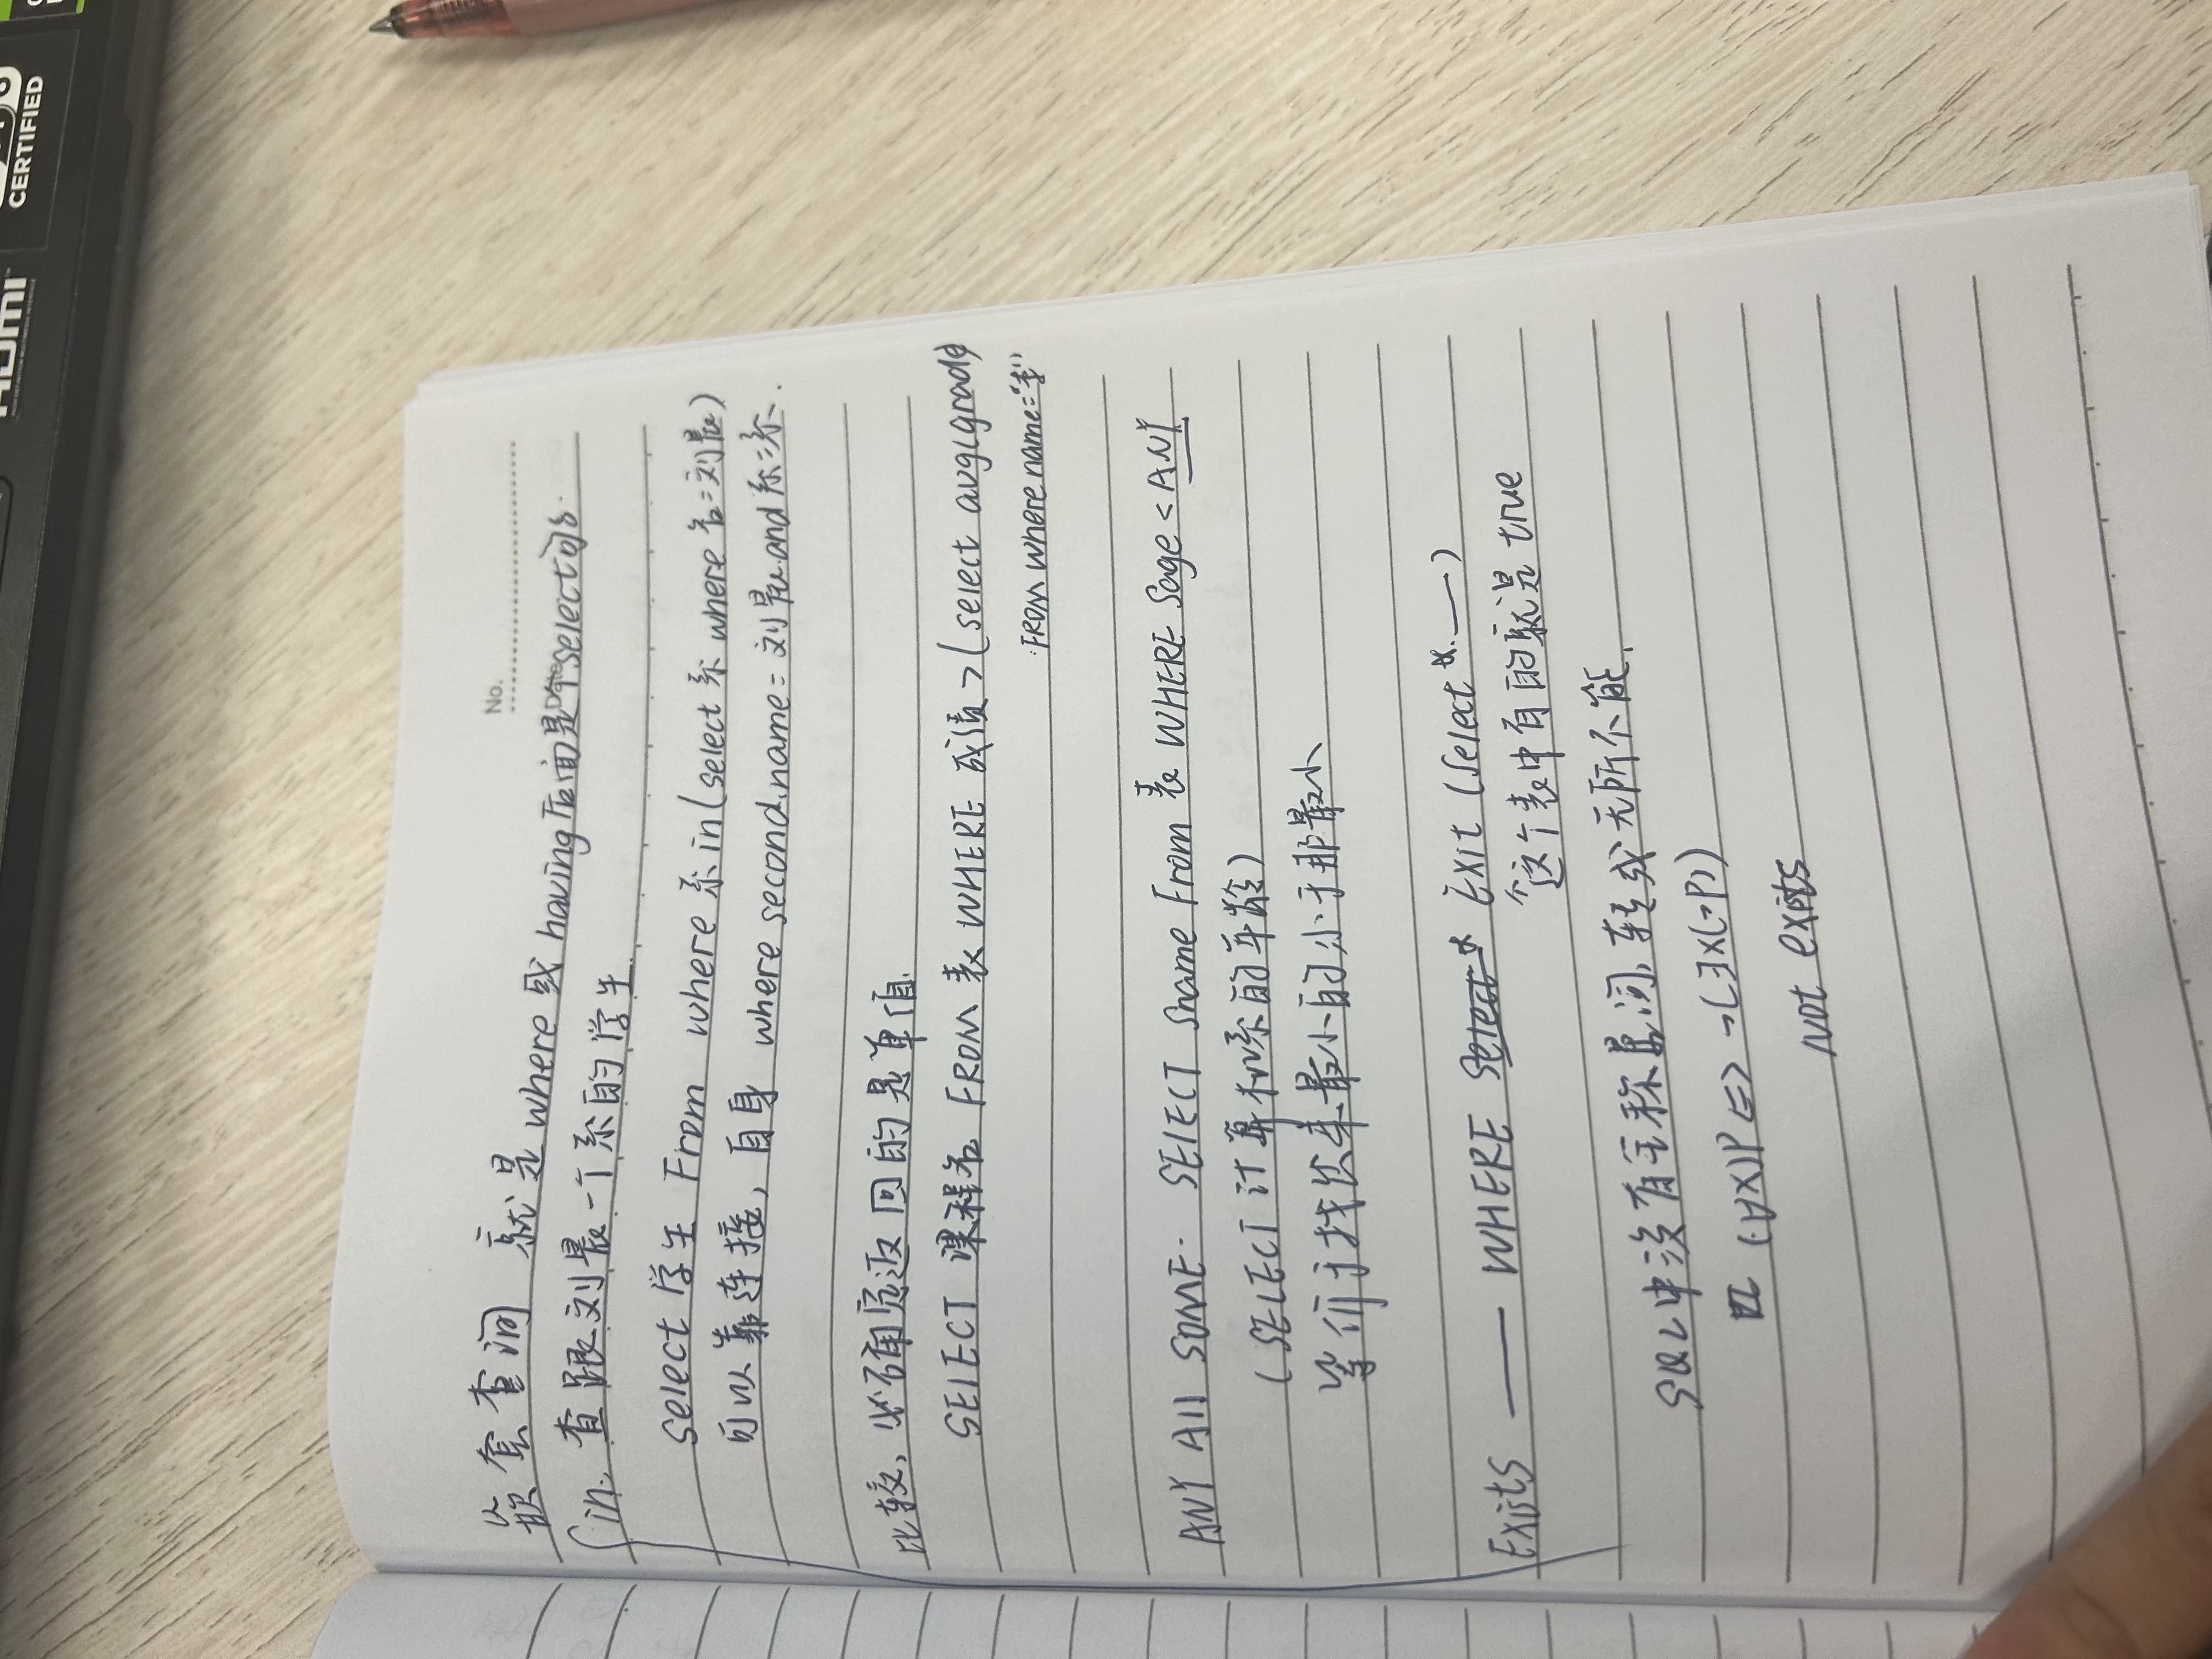 HDMI
HIGH-DEFINITION MULTIMEDIA INTERFACE
CERTIFIED
No.
Date
嵌套查询 就是where或having后面是个select的
in. 查跟刘晨一个系的学生.
select 学生 From where 系 in(select 系 where 名=刘晨)
可以靠连接, 自身 where second.name=刘晨and系=系.
比较, 必确定返回的是单值.
SELECT 课程名 FROM 表 WHERE 成绩>(select avg(grade)
FROM where name="李"
ANY All SOME. SELECT Sname From 表 WHERE Sage < ANY
(SELECT 计算机系的年龄)
等价于找出来最小的小于那最小
Exists —— WHERE Select * Exit (Select *. ——)
这个表中有的就是true
SQL中没有全称量词, 转成无所不能.
(∀X)P <=> ¬(∃X(¬P))
Not exists